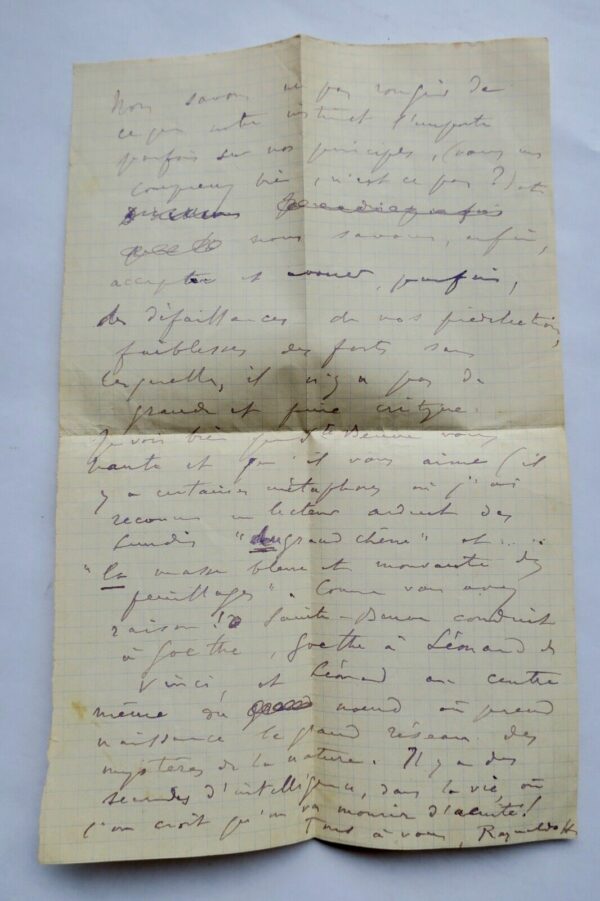 Nous savons ne pas rougir de
ce que notre instinct l'emporte
parfois sur nos principes, (vous me
comprenez bien, n'est ce pas ?)
nous savons, enfin,
accepter et avouer, parfois,
des défaillances de nos prédilections,
faiblesses des forts sans
lesquelles, il n'y a pas de
grande et fine critique.
Je vois bien que Ste Beuve vous
hante et qu'il vous aime (il
y a certaines métaphores où j'ai
reconnu un lecteur ardent des
Lundis "du grand chêne" et ...
"la masse bleue et mouvante des
feuillages". Comme vous avez
raison ! Sainte-Beuve conduit
à Goethe, Goethe à Léonard de
Vinci, et Léonard au centre
même du nœud où prend
naissance le grand réseau des
mystères de la nature. Il y a des
secondes d'intelligence, dans la vie, où
l'on croit qu'on va mourir d'acuité !
Tout à vous, Reynaldo H